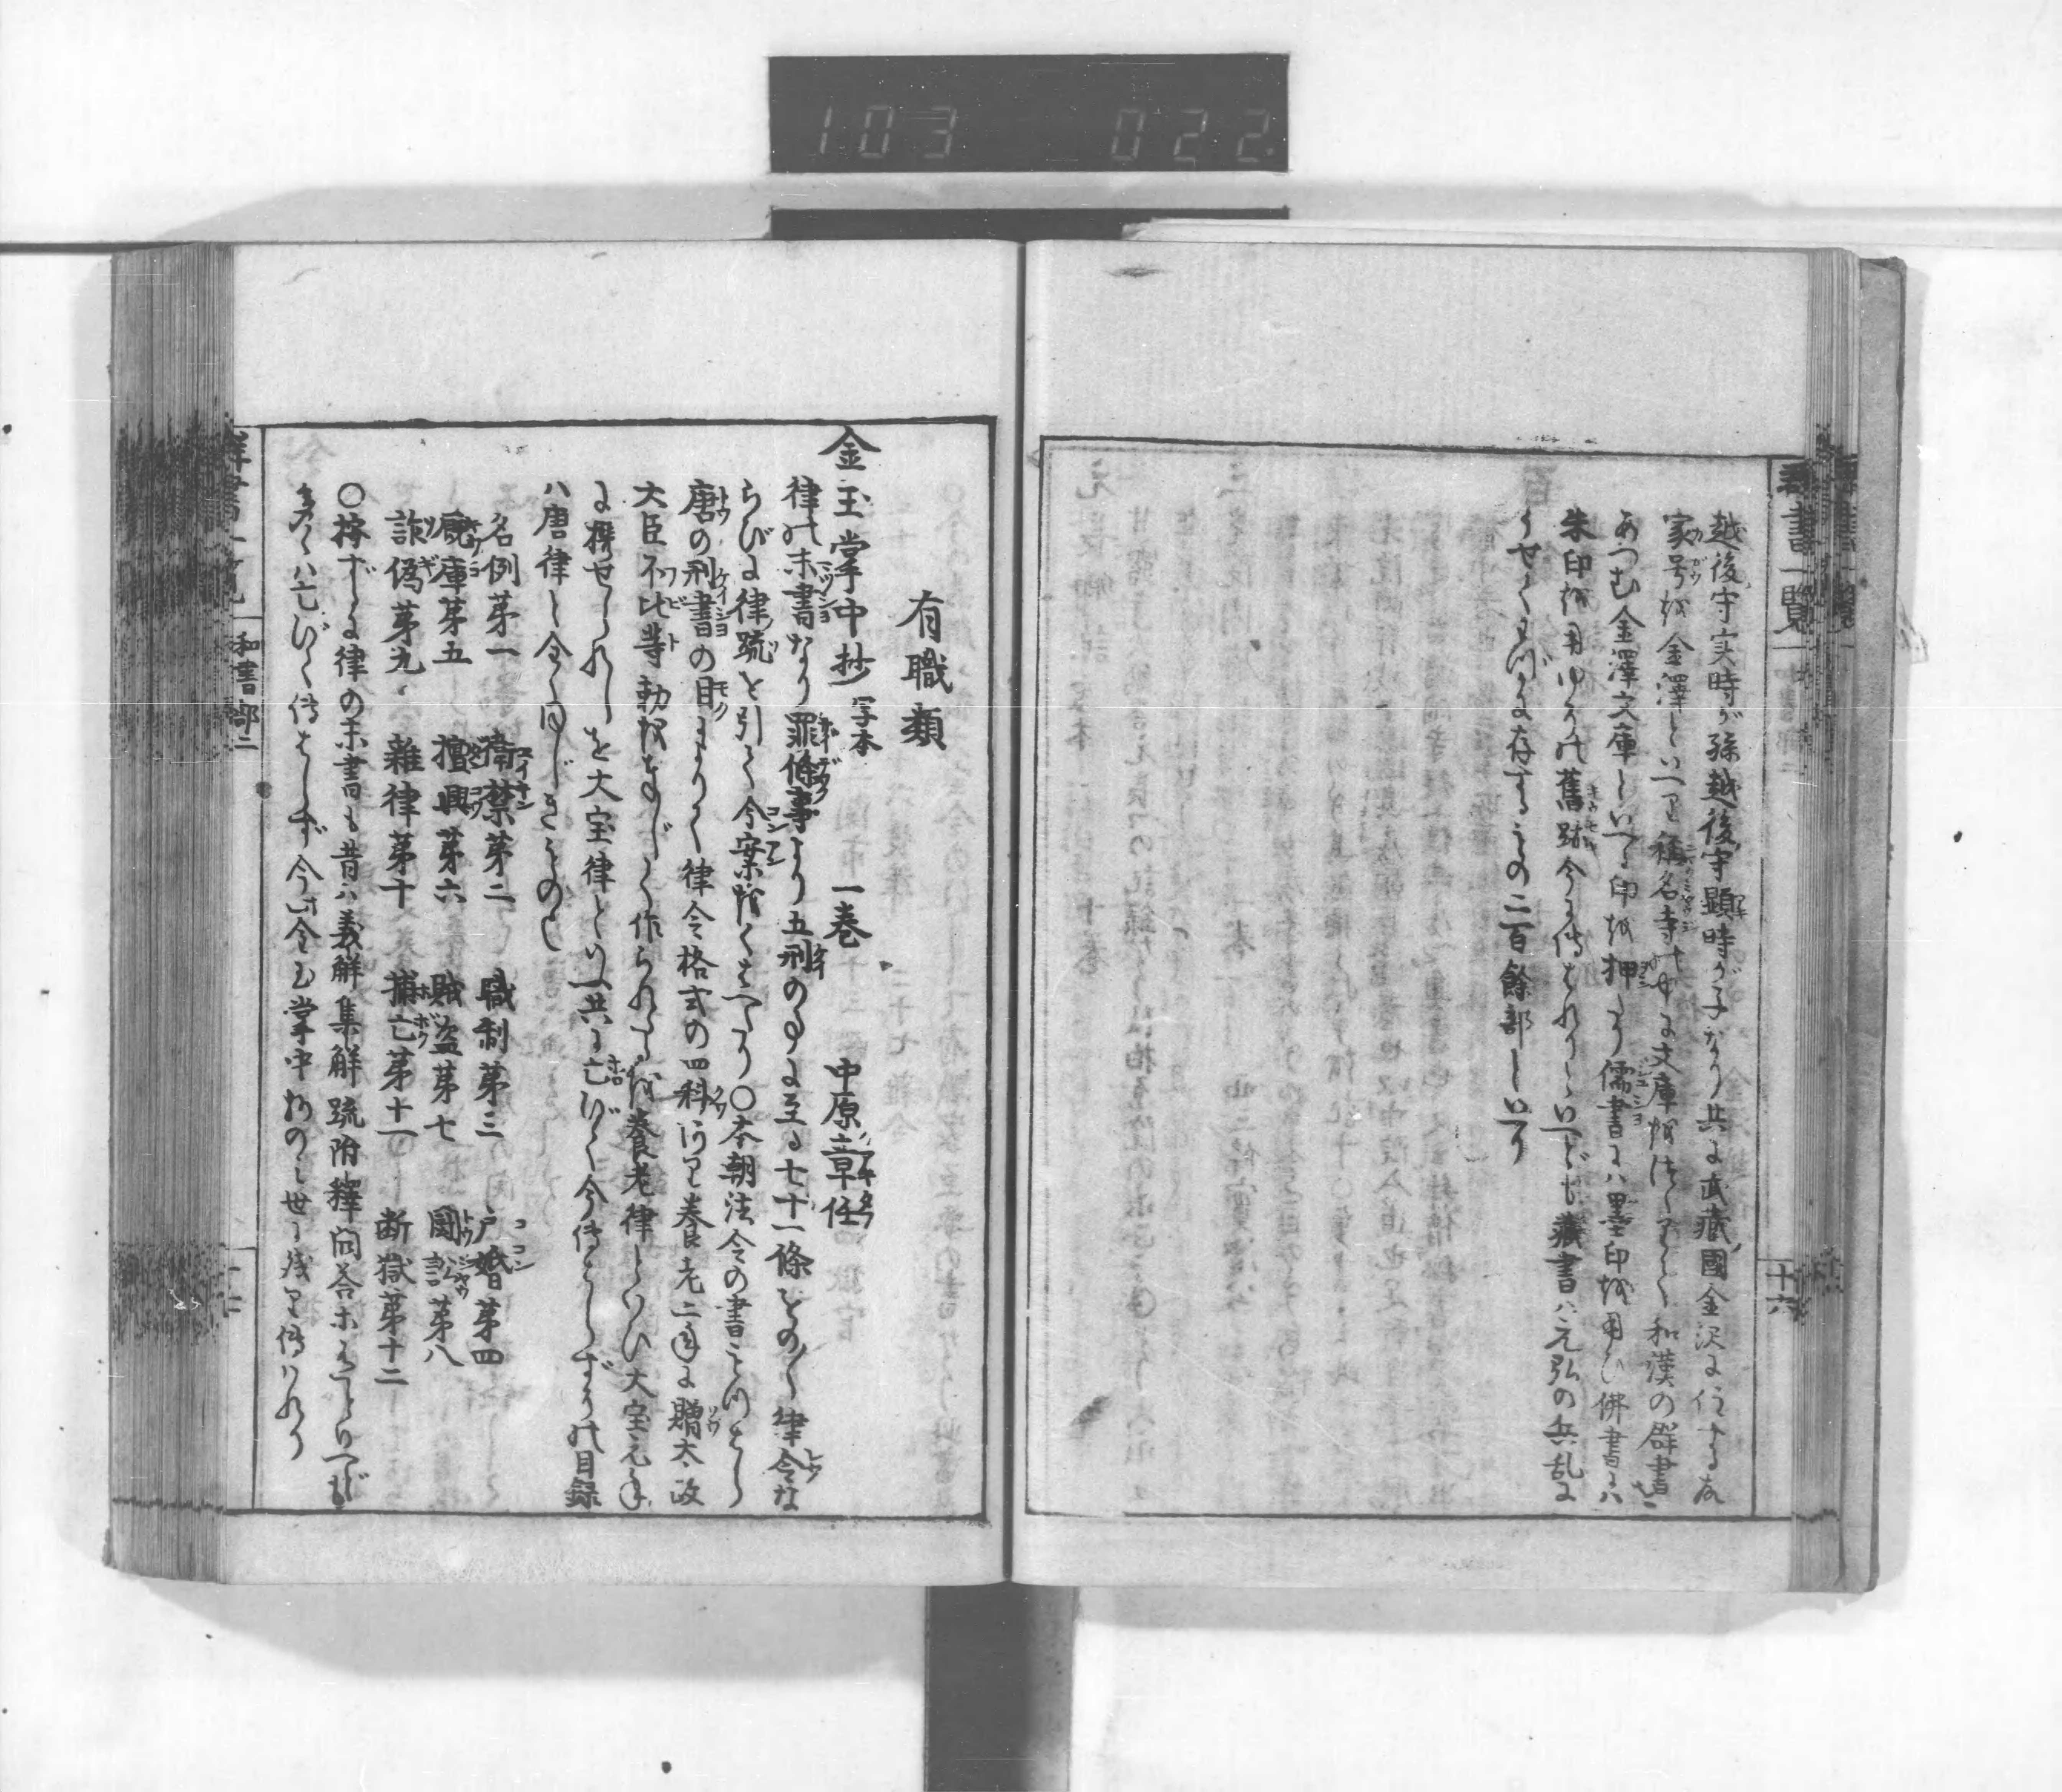 103 022
群書一覽
十六
越後守実時が孫越後守顕時が子なり共に武蔵國金沢に住する故
家号を金澤といへり稱名寺の中に文庫を建て和漢の群書を
あつむ金澤文庫といへる印を押せり儒書には墨印を用ひ佛書には
朱印を用ゆその舊跡今に傳はれりといへども藏書は元弘の兵乱に
うせてわづかに存するもの二百餘部といへり
有職類
金玉掌中抄 写本 一巻 中原章任
律の末書なり罪條事より五刑の事に至る七十一條をのせ律令な
らびに律疏を引て今案を附くはへたり○本朝法令の書ことごとく
唐の刑書の目により律令格式の四科あり養老二年に贈太政
大臣不比等勅を奉じて作られたるを養老律といひ大宝元年
に撰せられしを大宝律といへ共に亡びて今傳はらずその目録
ハ唐律と全く同じきもの也
名例第一 衛禁第二 職制第三 戸婚第四
廐庫第五 擅興第六 賊盗第七 闘訟第八
詐偽第九 雜律第十 捕亡第十一 断獄第十二
○按ずるに律の末書も昔は義解集解疏附釋問答等ありといへども
多くは亡びて傳はらず今此金玉掌中抄のミ世に残り傳はれり
群書一覽
和書部二